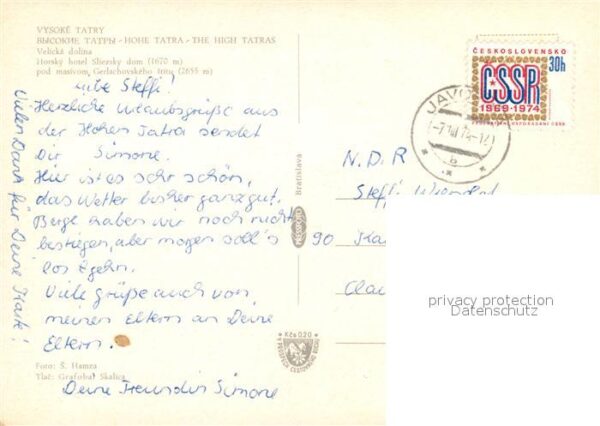 VYSOKÉ TATRY
ВЫСОКИЕ ТАТРЫ - HOHE TATRA - THE HIGH TATRAS
Velická dolina
Horský hotel Sliezsky dom (1670 m)
pod masívom Gerlachovského štítu (2655 m)
Liebe Steffi!
Herzliche Urlaubsgrüße aus
der Hohen Tatra sendet
Dir Simone.
Hier ist es sehr schön,
das Wetter bisher ganz gut.
Berge haben wir noch nicht
bestiegen, aber morgen soll's
los gehn.
Viele Grüße auch von
meinen Eltern an Deine
Eltern.
Deine Freundin Simone
Vielen Dank für Deine Karte!
Foto: Š. Hamza
Tlač: Grafobal Skalica
Bratislava
Kčs 0,20
ČESKOSLOVENSKO
30h
ČSSR
1969-1974
JAVO
N.D.R
Steffi
90
Clau
privacy protection
Datenschutz